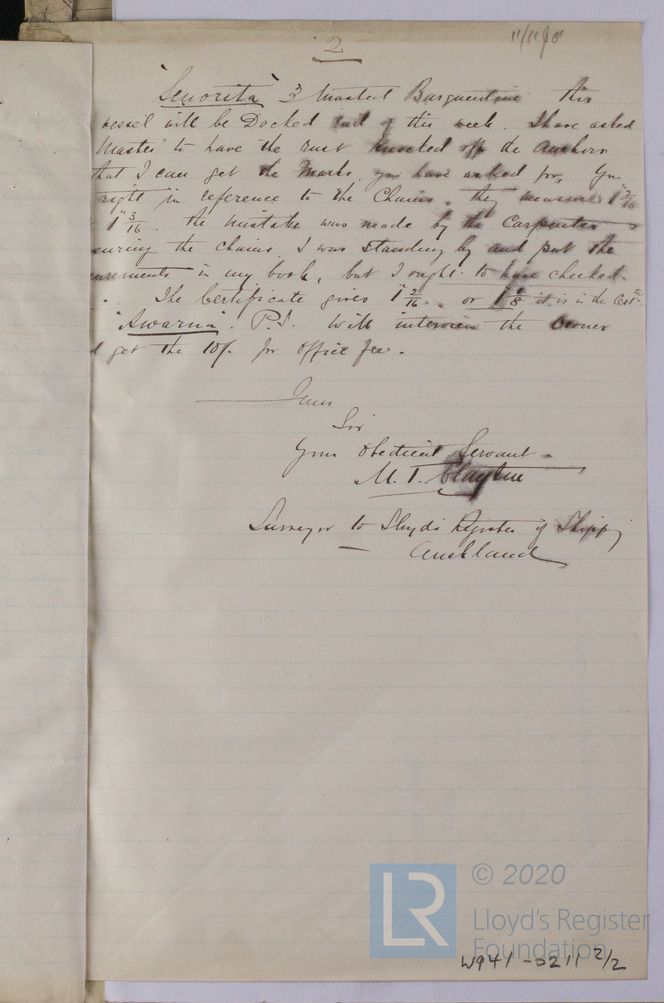 2
11/11/8
"Senorita" 3 Masted Barquentine this
vessel will be Docked end of this week. I have asked
Master to have the rust knocked off the Anchors
that I can get the Marks you have asked for. You
right in reference to the Chains. they measure 1" 2/16
1" 3/16. the mistake was made by the Carpenter
suring the chains. I was standing by and put the
urements in my book, but I ought to have checked.
The Certificate gives 1" 2/16 or 1 1/8 it is in the Cert.te
"Awarua". P.S. Will interview the Owner
get the 10/- for office fee.
I am
Sir
Your Obedient Servant
M. T. Clayton
Surveyor to Lloyds Register of Shipp
Auckland
LR © 2020
Lloyd's Register
Foundation
W941-0211 2/2